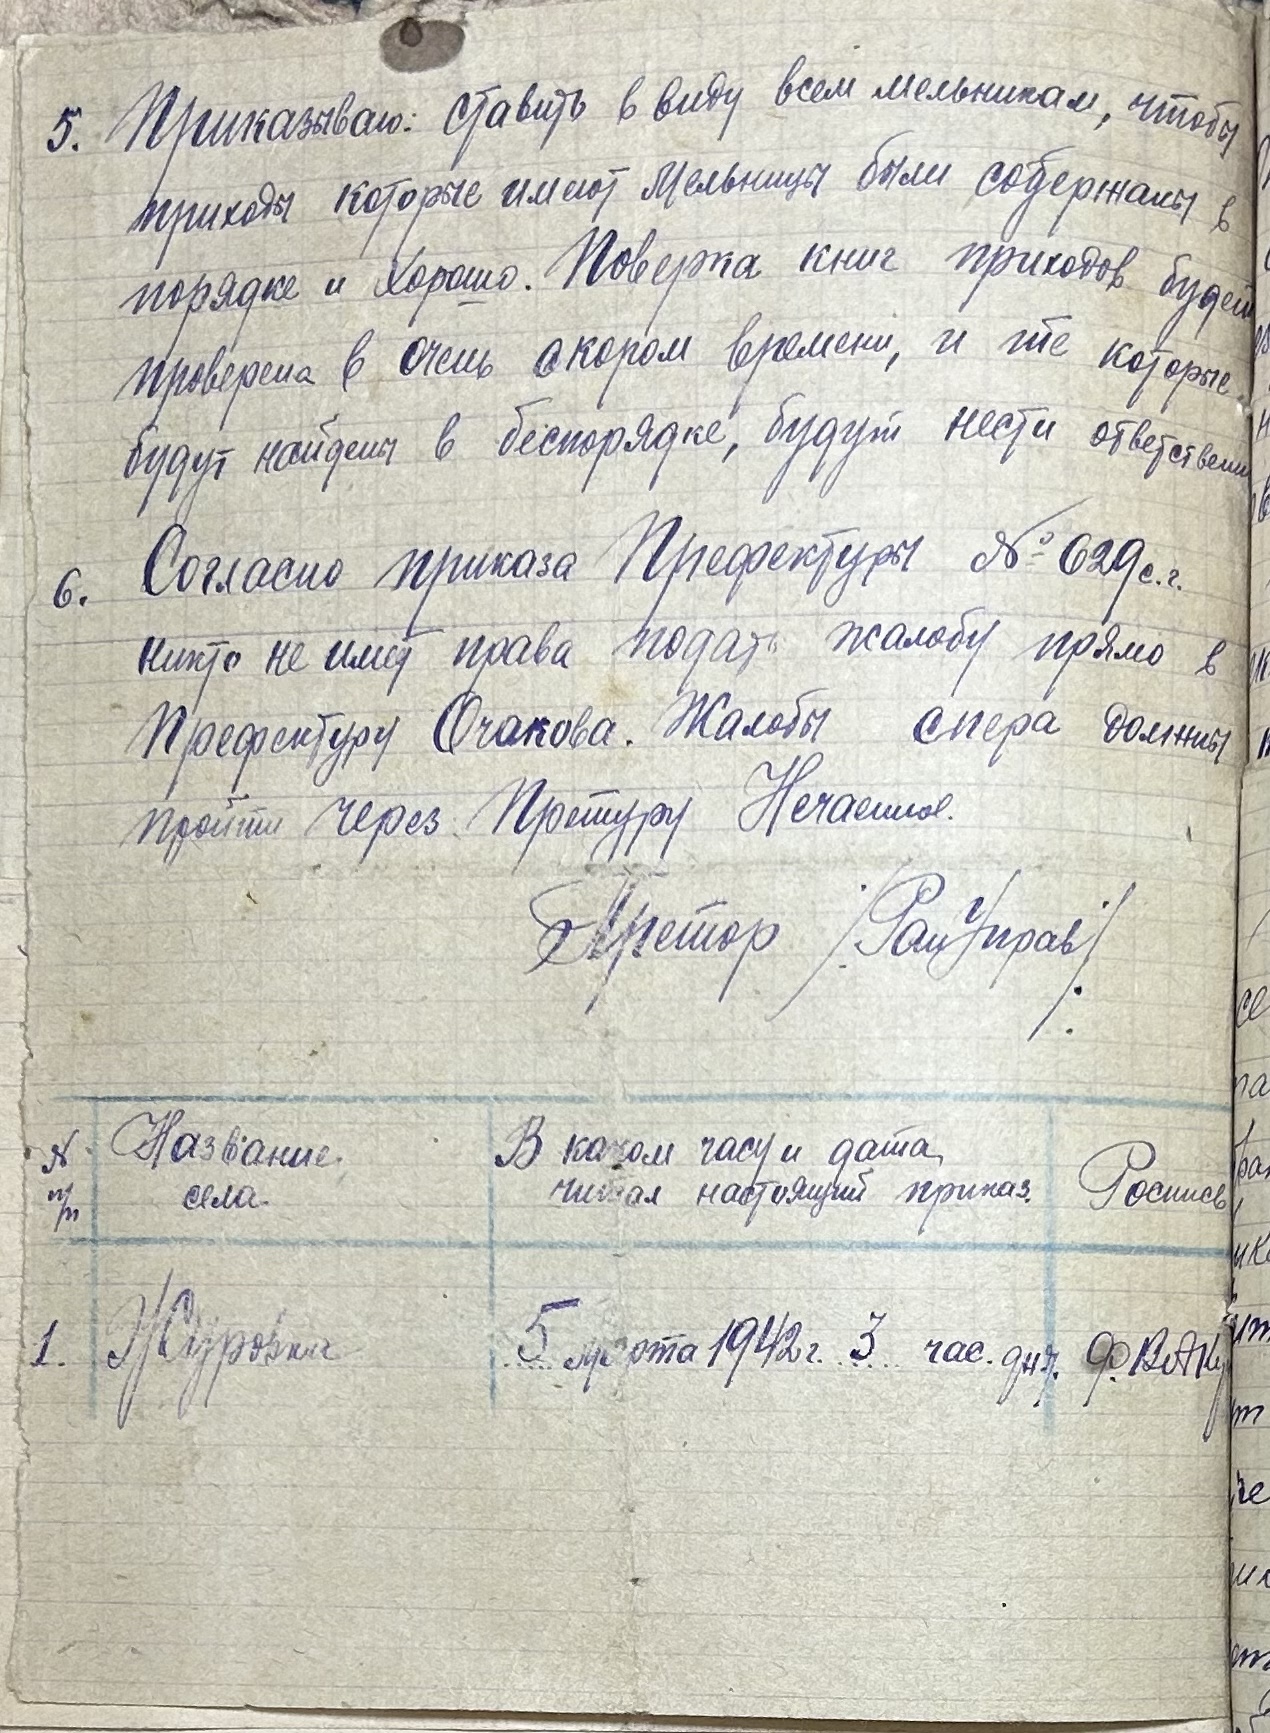 5. Приказываю: ставить в виду всем мельникам, чтобы
приходы которые имеют мельницы были содержаны в
порядке и хорошо. Поверка книг приходов будет
проверена в очень скором времени, и те которые
будут найдены в беспорядке, будут нести ответственн
6. Согласно приказа Префектуры № 629 с.г.
никто не имет права подать жалобу прямо в
Префектуру Очакова. Жалобы спера должны
пройти через Претуру Нечаенное.
Претор /РайУправ/
№ п/п Название села В каком часу и дата, читал настоящий приказ. Роспись
1. Журовка 5 марта 1942 г. 3 час. дня.